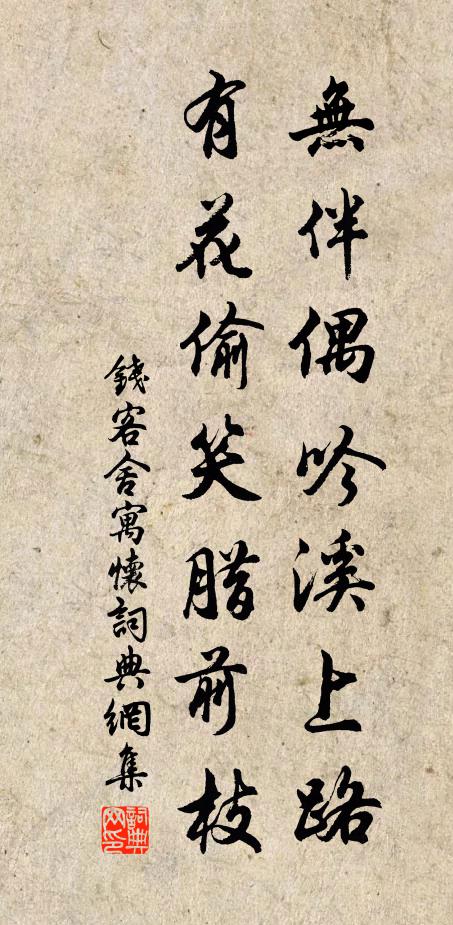 無伴偶吟溪上路
有花偷笑腊前枝
錢客舍寓懷詞典網集
詞典网印